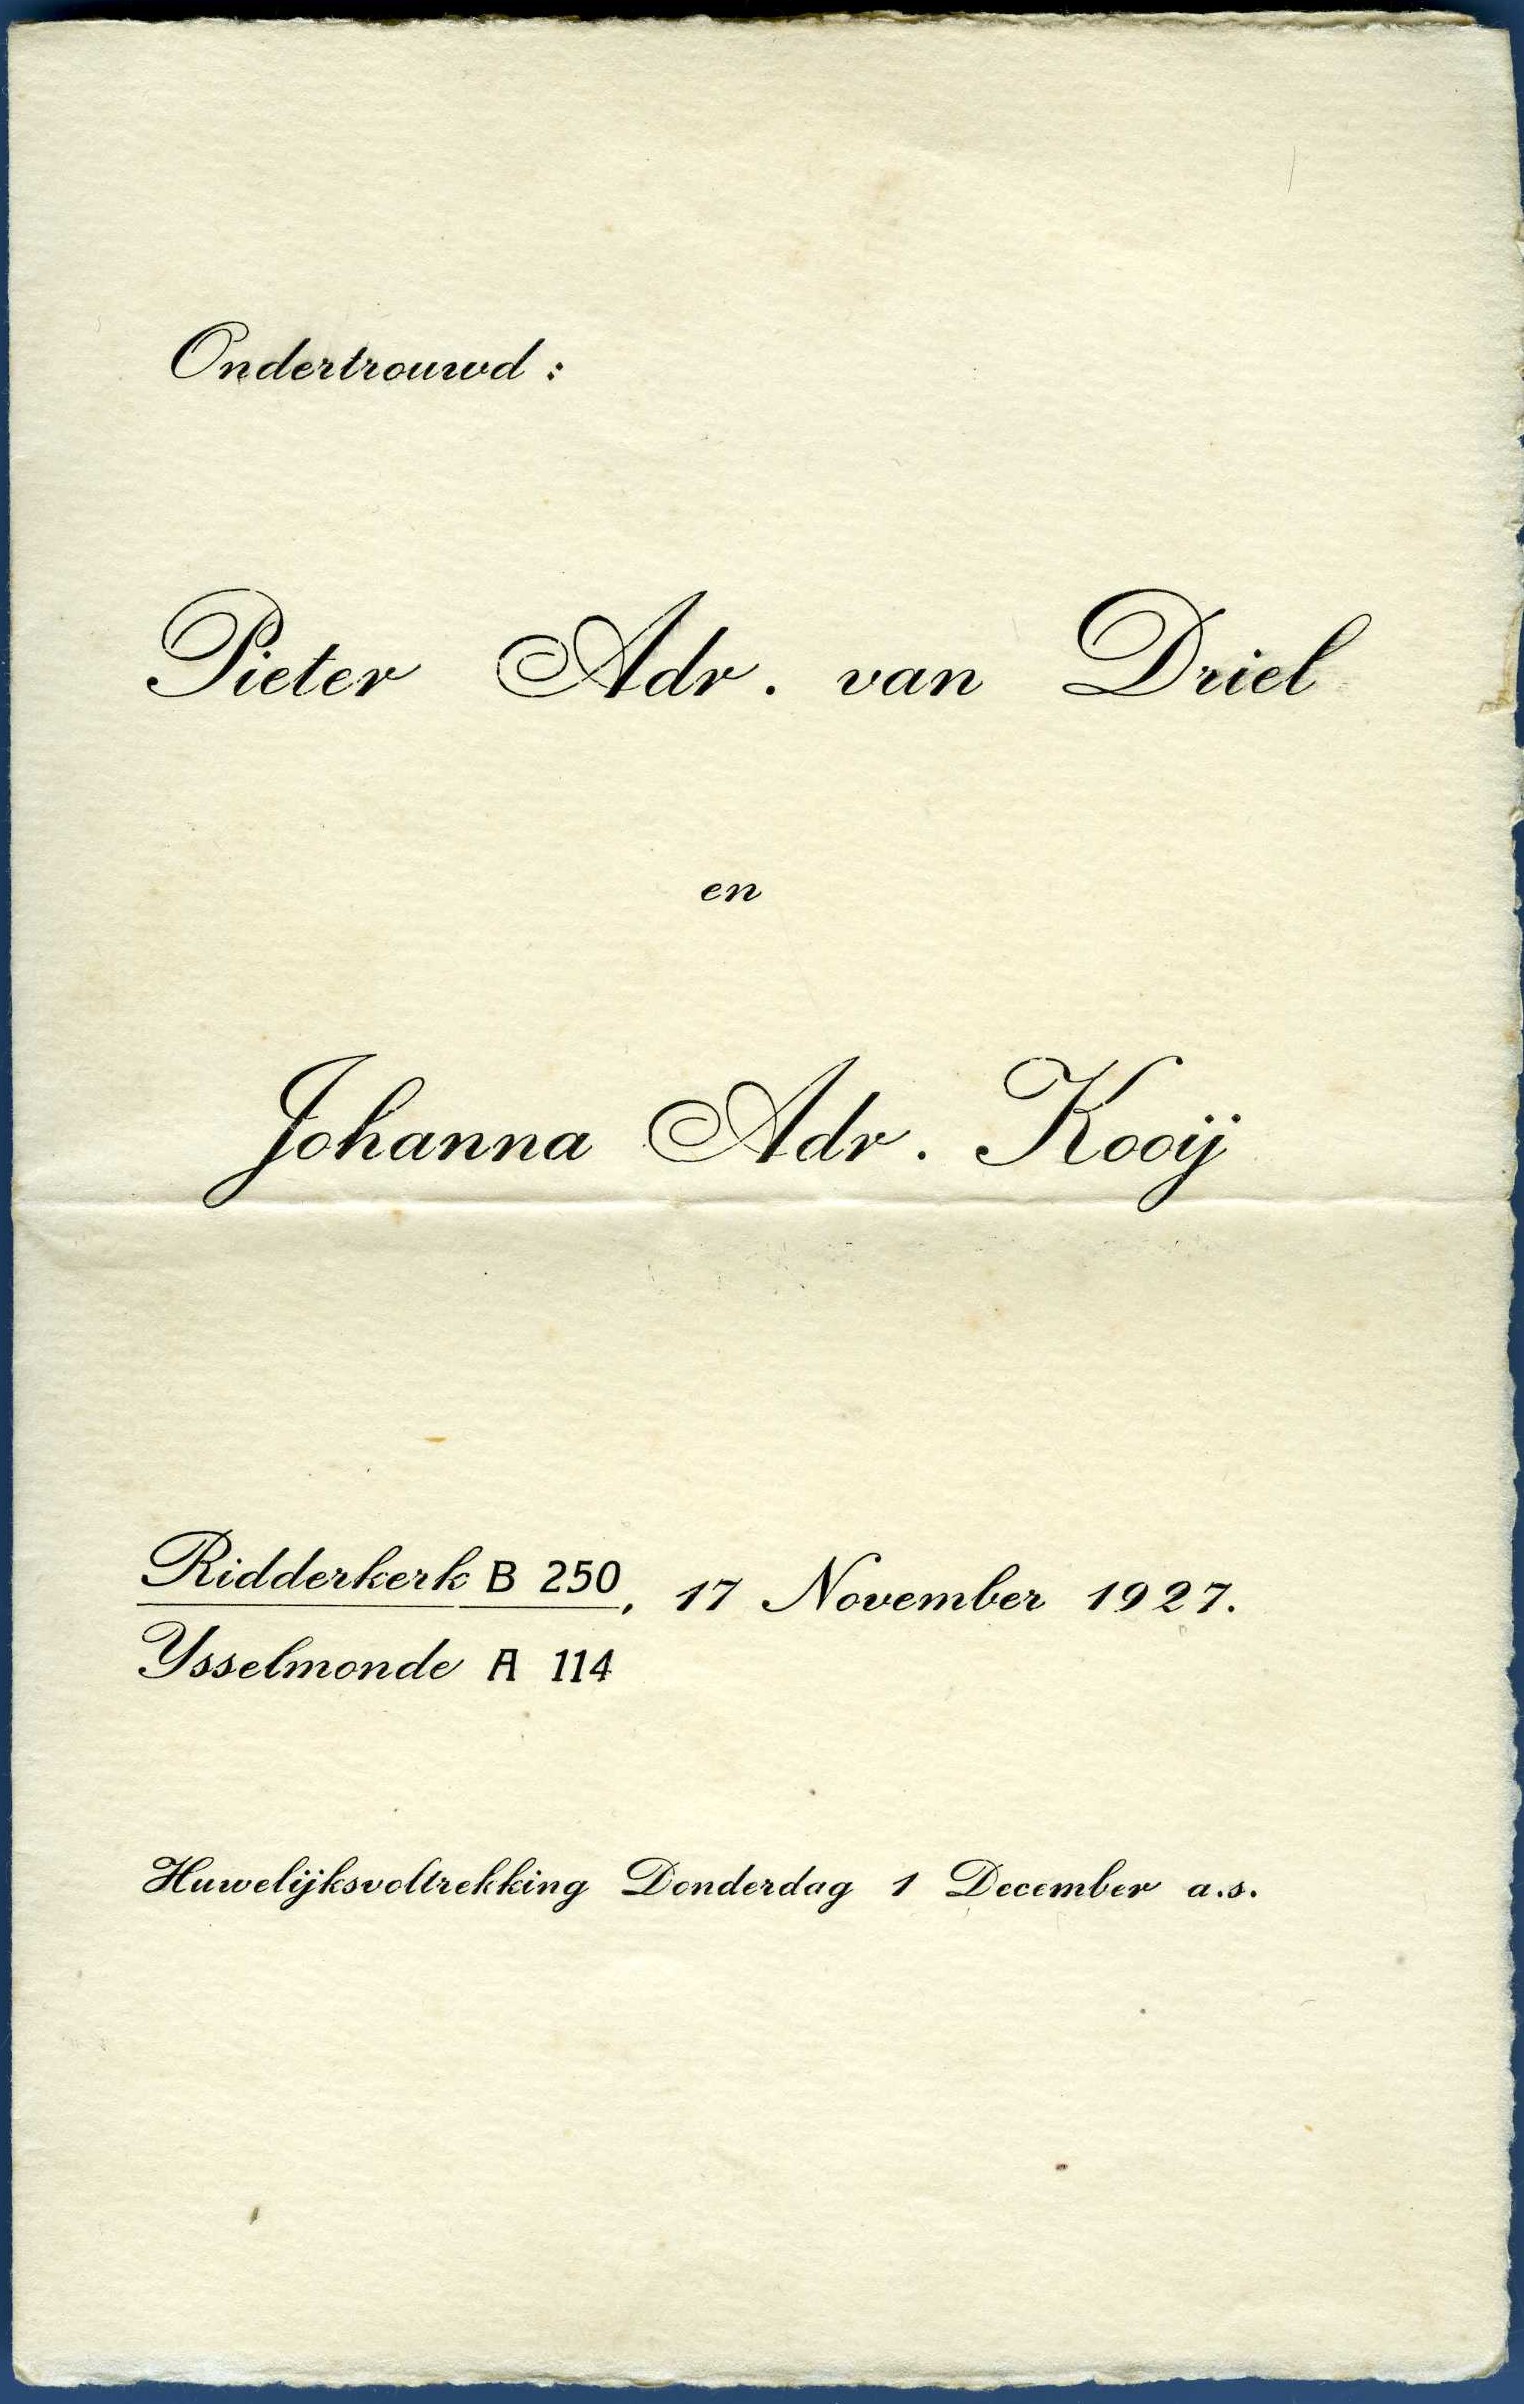 Ondertrouwd:
Pieter Adr. van Driel
en
Johanna Adr. Kooij
Ridderkerk B 250, 17 November 1927.
Ysselmonde A 114
Huwelijksvoltrekking Donderdag 1 December a.s.